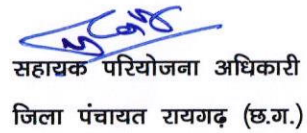 सहायक परियोजना अधिकारी
जिला पंचायत रायगढ़ (छ.ग.)